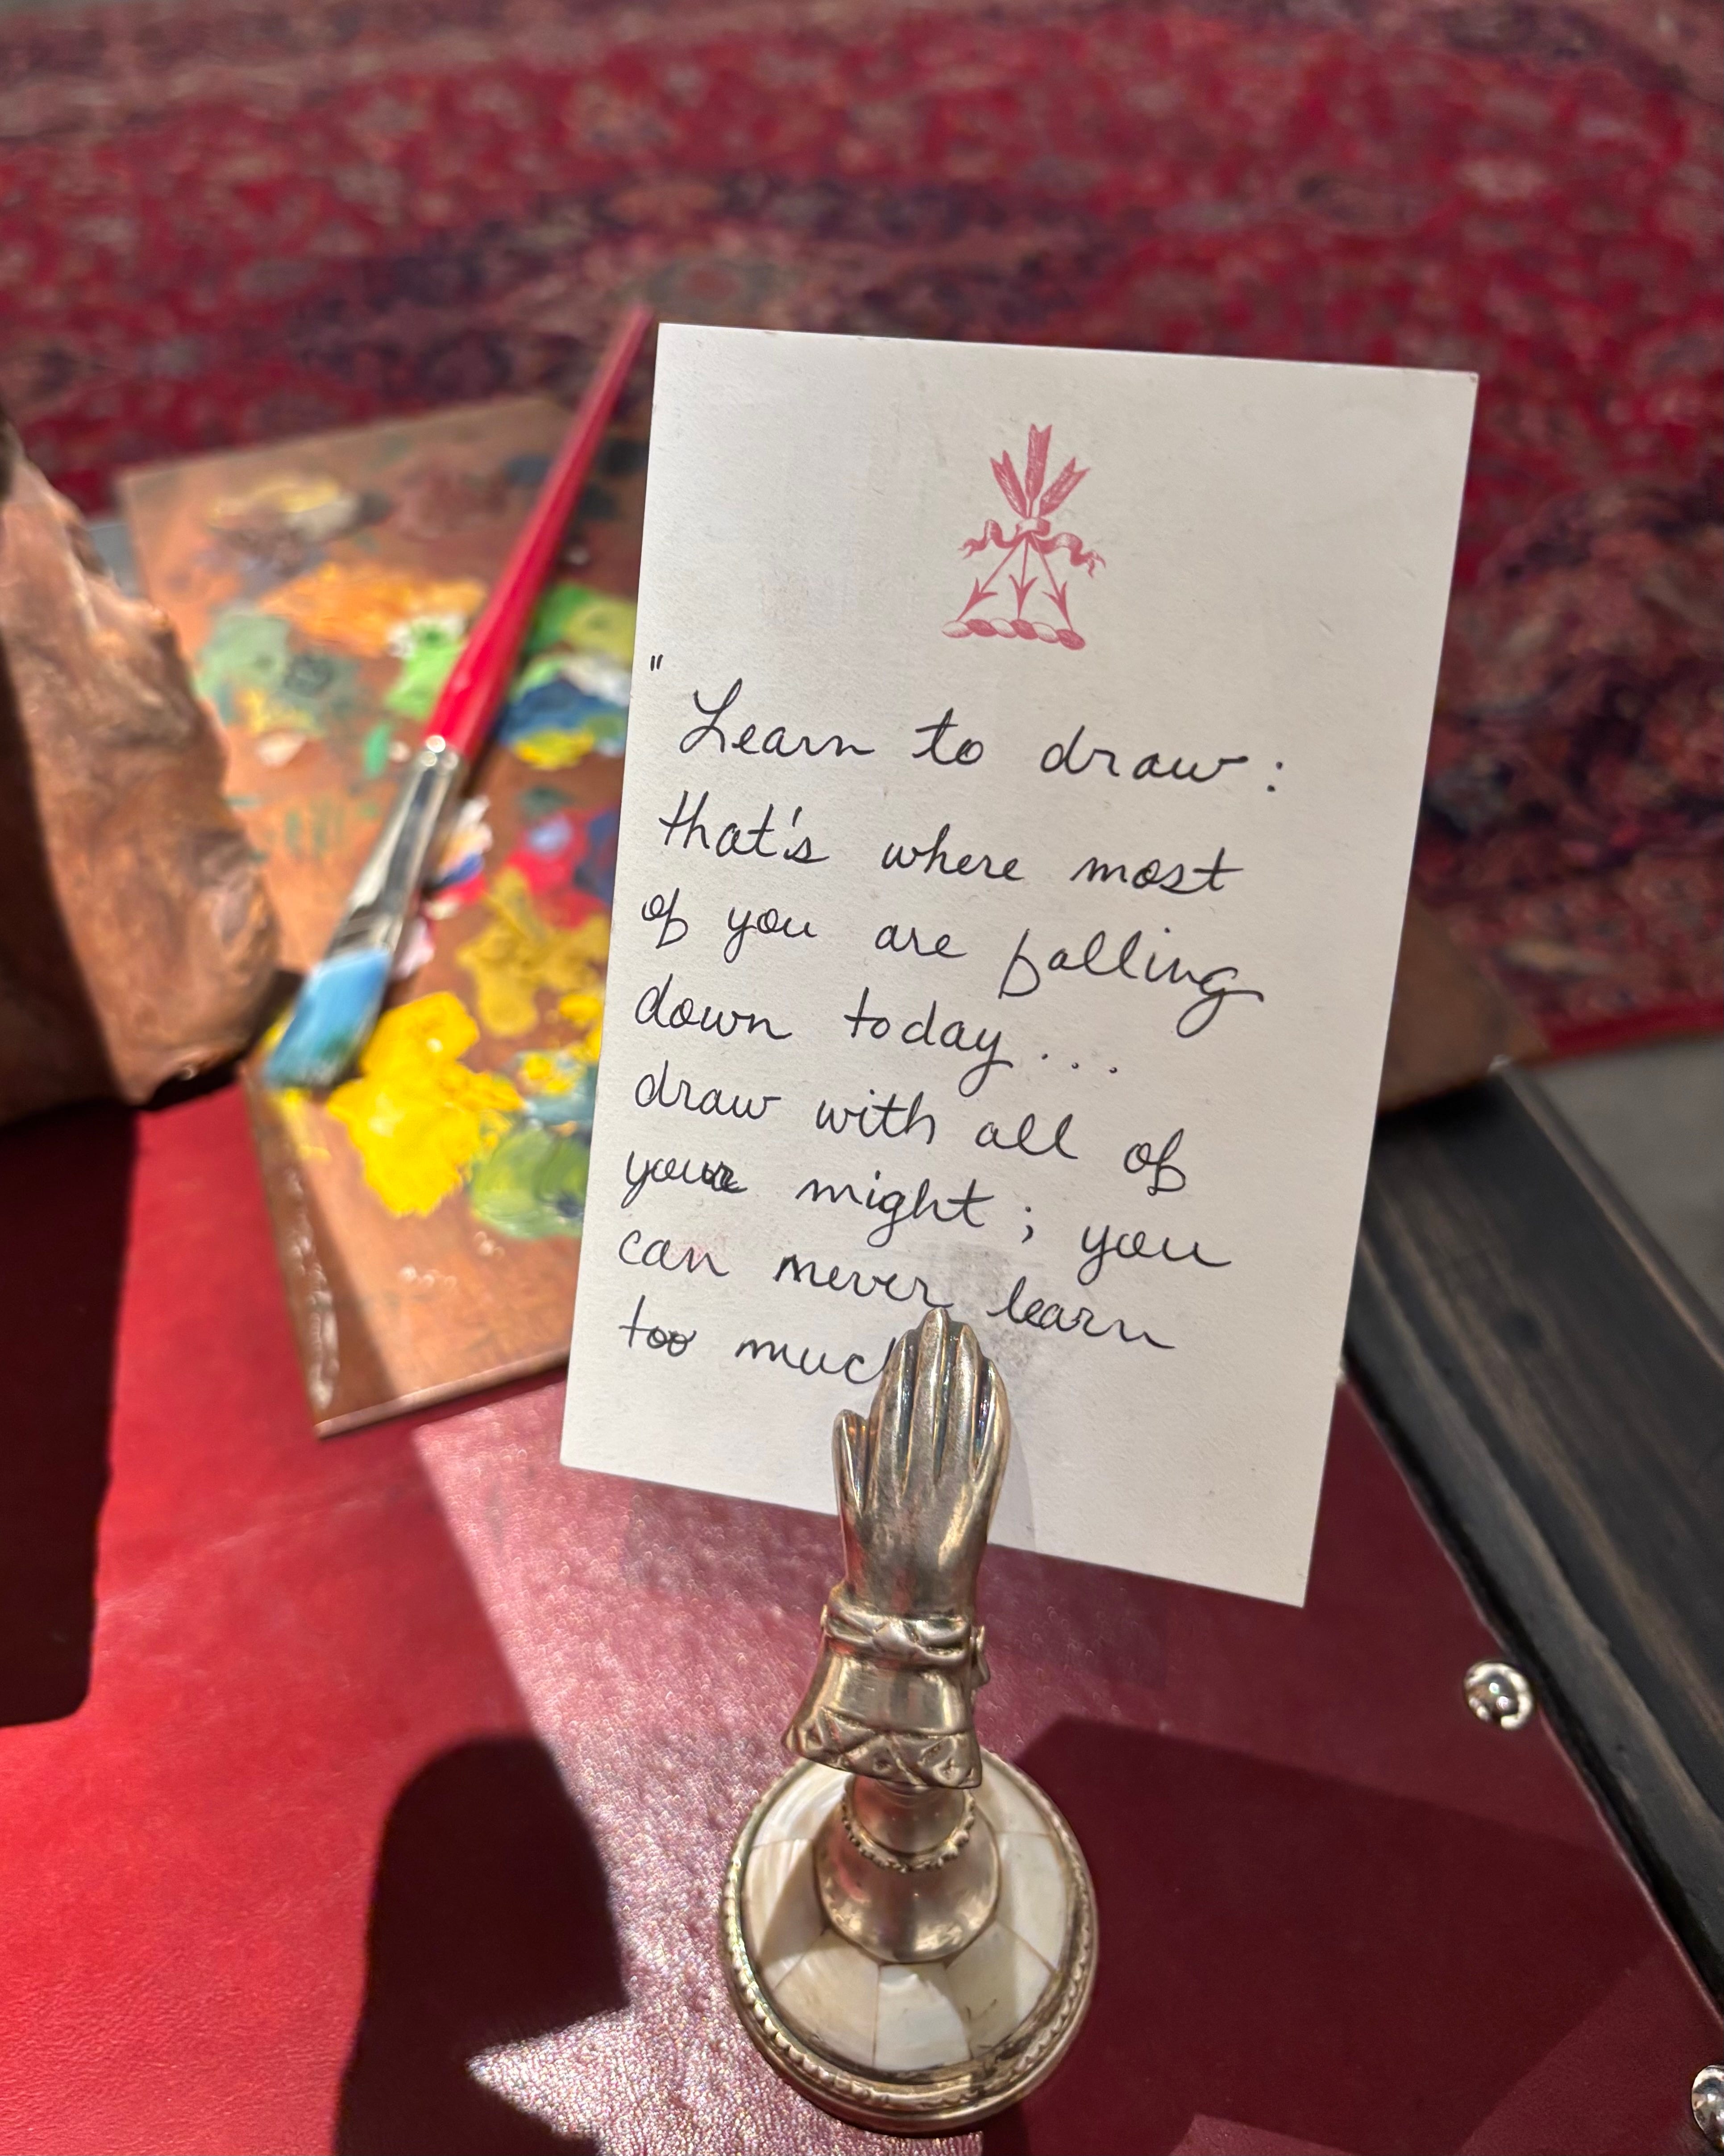 "Learn to draw:
that's where most
of you are falling
down today...
draw with all of
your might; you
can never learn
too much